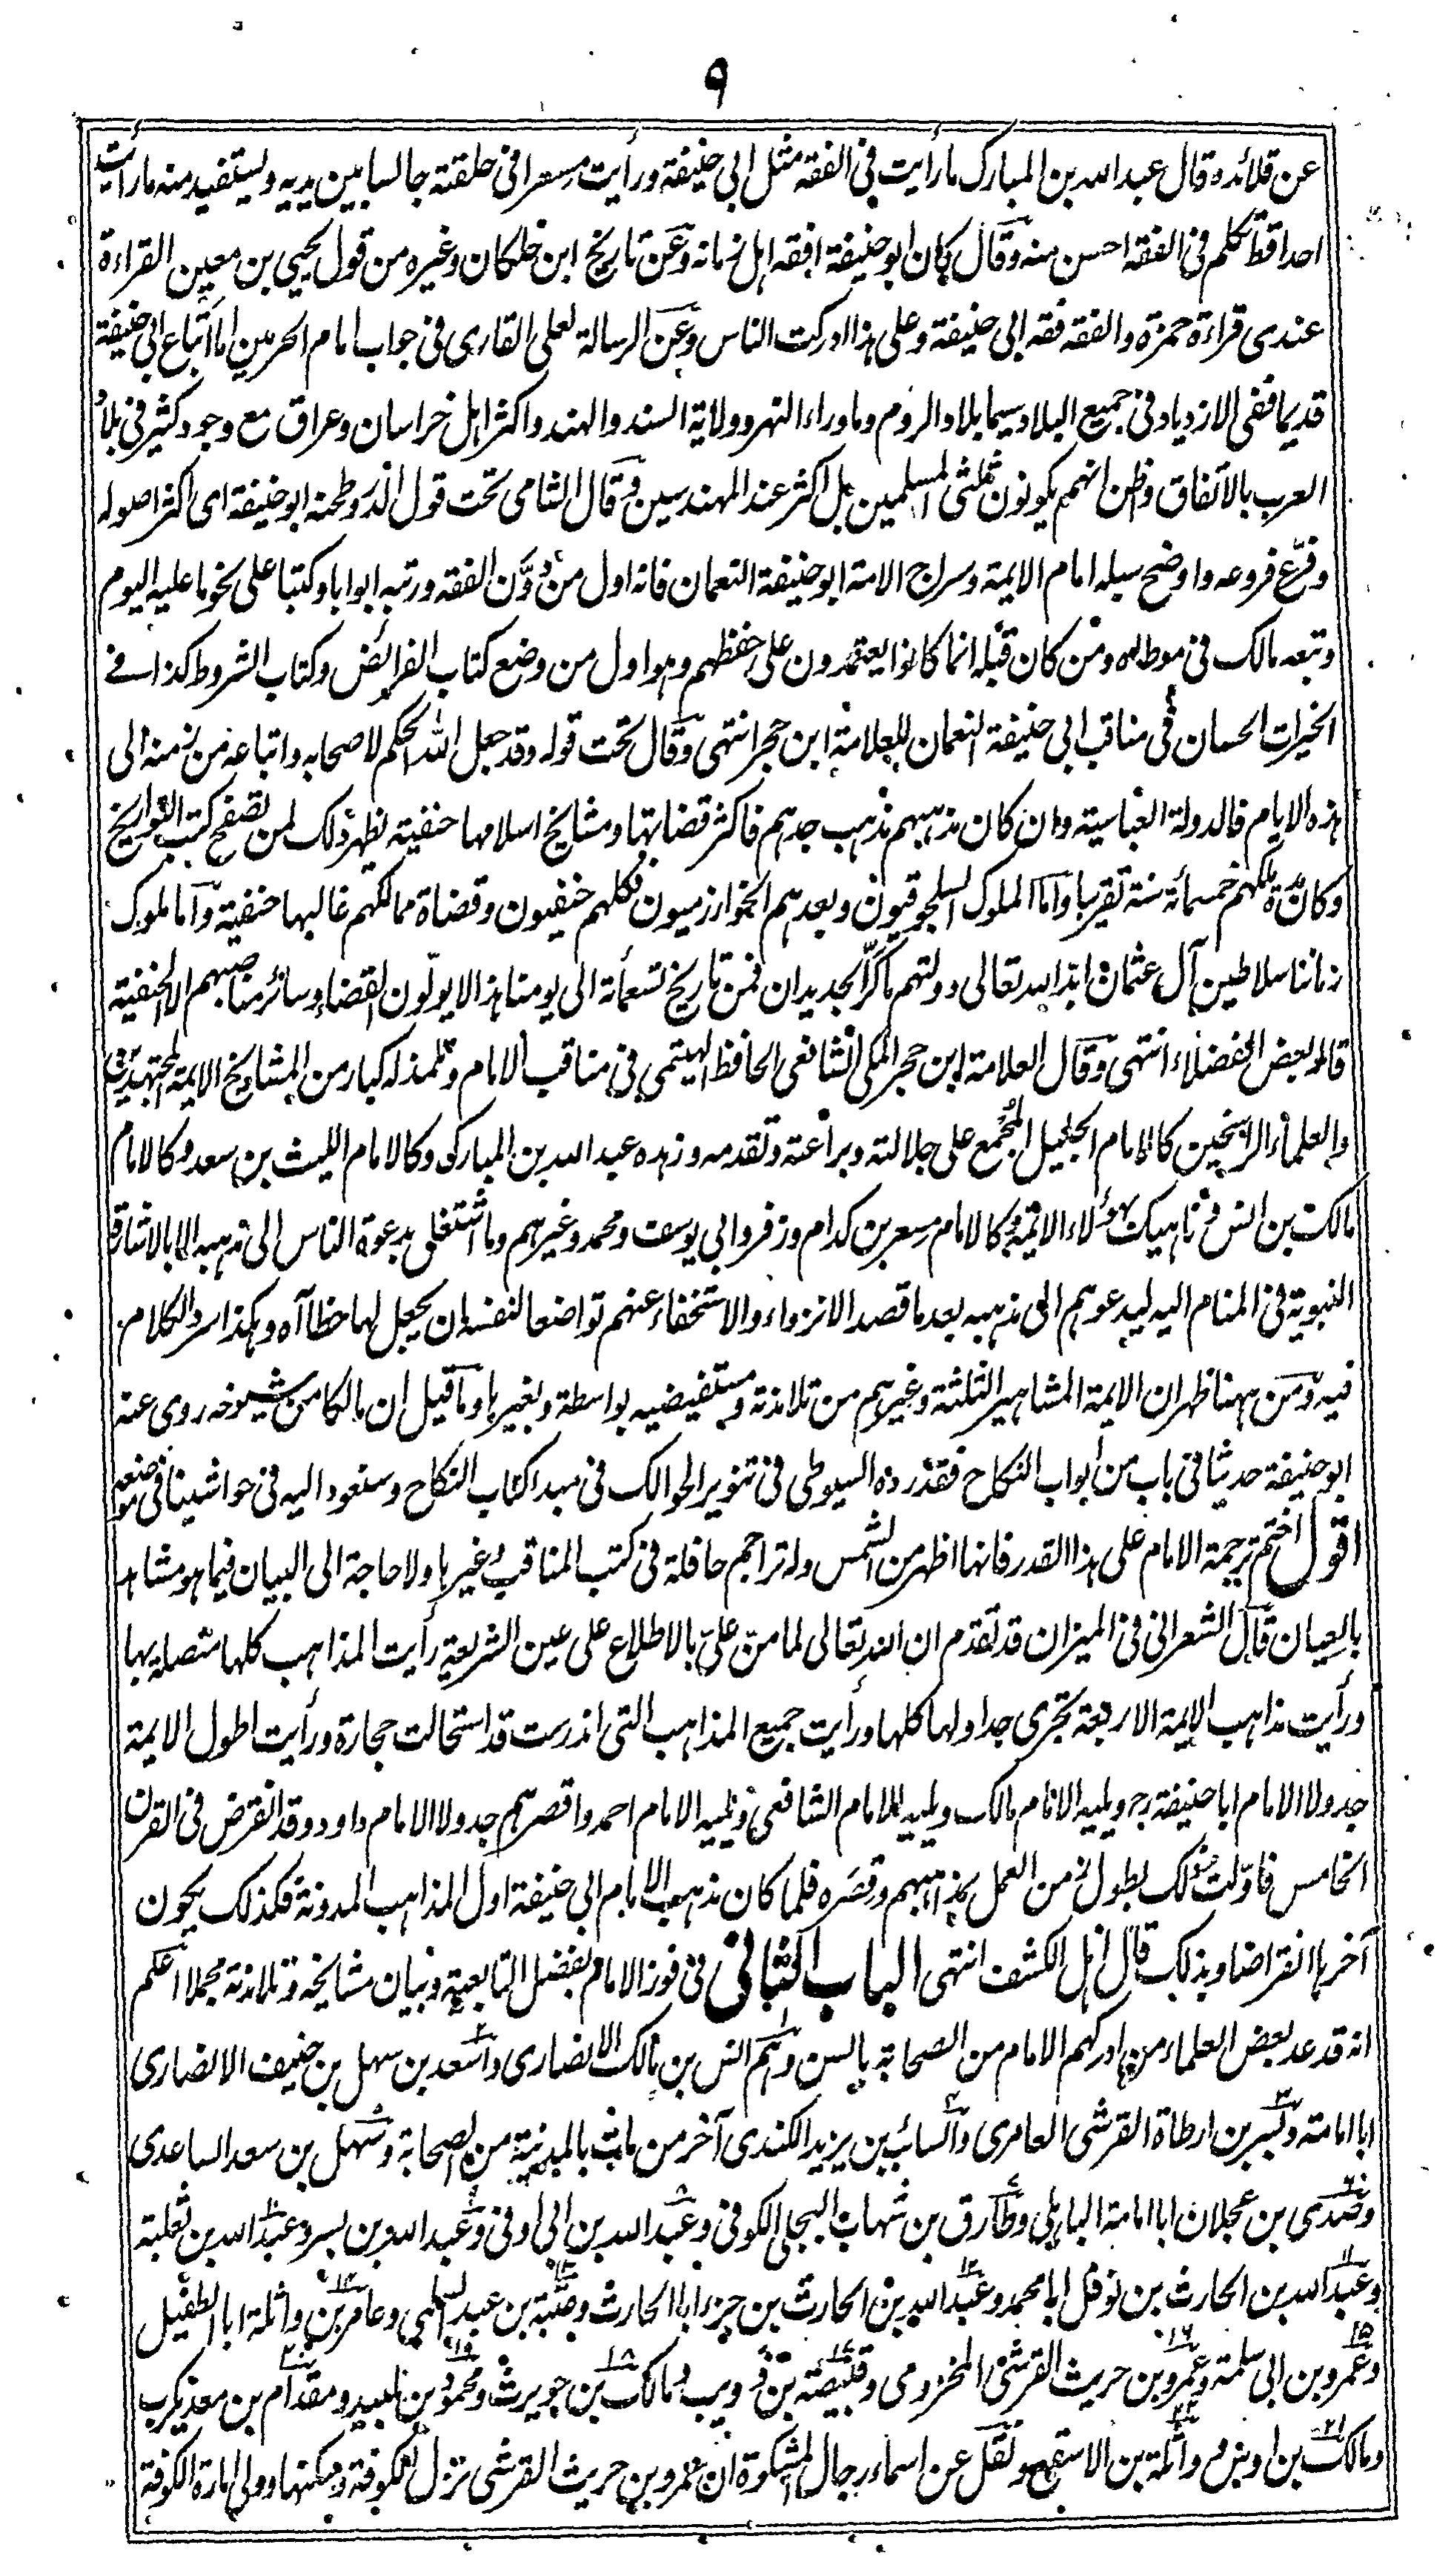 ٩
عن قلائده وقال عبد الله بن المبارك ما رأيت في الفقه مثل ابي حنيفة ورأيت مسعرا في حلقته جالسا بين يديه ويستفيد منه ما رأيت
احدا قط تكلم في الفقه احسن منه وقال كان ابو حنيفة افقه اهل زمانه وعن تاريخ ابن خلكان وغيره من قول يحيي بن معين القراءة
عندى قراءة حمزة والفقه فقه ابي حنيفة وعلى هذا ادركت الناس وعن الرسالة لعلى القارى في جواب امام الحرمين اما اتباع ابي حنيفة
قديما ففى الازدياد في جميع البلاد سيما بلاد الروم وما وراء النهر وولاية السند والهند واكثر اهل خراسان وعراق مع وجود كثير في بلاد
العرب بالاتفاق وظن انهم يكونون ثلثى المسلمين بل اكثر عند المهندسين وقال الشامى تحت قول الدر وطحنه ابو حنيفة اى اكثر اصوله
وفرّع فروعه واوضح سبله امام الايمة وسراج الامة ابو حنيفة النعمان فانه اول من دوّن الفقه ورتبه ابوابا وكتبا على نحو ما عليه اليوم
وتبعه مالك في موطاه ومن كان قبله انما كانوا يعتمدون على حفظهم وهو اول من وضع كتاب الفرائض وكتاب الشروط كذا في
الخيرات الحسان في مناقب ابي حنيفة النعمان للعلامة ابن حجر انتهى وقال تحت قوله وقد جعل الله الحكم لاصحابه واتباعه من زمنه الى
هذه الايام فالدولة العباسية وان كان مذهبهم مذهب جدهم فاكثر قضاتها ومشايخ اسلامها حنفية يظهر ذلك لمن تصفح كتب التواريخ
وكان مدة ملكهم خمسمائة سنة تقريبا واما الملوك السلجوقيون وبعدهم الخوارزميون فكلهم حنفيون وقضاة ممالكهم غالبها حنفية واما ملوك
زماننا سلاطين آل عثمان ايد الله تعالى دولتهم ما كرّ الجديدان فمن تاريخ تسعمأئة الى يومنا هذا لا يولّون القضاء وسائر مناصبهم الا لحنفية
قاله بعض الفضلاء انتهى وقال العلامة ابن حجر المكى الشافعى الحافظ الهيتمى في مناقب الامام وتلمذ له كبار من المشايخ الايمة المجتهدين
والعلماء الراسخين كالامام الجليل المجمع على جلالته وبراعته وتقدمه وزهده عبد الله بن المبارك وكالامام الليث بن سعد وكالامام
مالك بن انس وناهيك بهؤلاء الائمة وكالامام مسعر بن كدام وزفر وابي يوسف ومحمد وغيرهم وما اشتغل بدعوة الناس الى مذهبه الا بالاشارة
النبوية في المنام اليه ليدعوهم الى مذهبه بعد ما قصد الانزواء والاستخفاء عنهم تواضعا لنفسه ان يجعل لها حظا آه وبهكذا سرد الكلام
فيه ومن ههنا ظهر ان الايمة المشاهير الثلثة وغيرهم من تلامذته ومستفيضيه بواسطة وبغيرها وما قيل ان مالكا من شيوخه روى عنه
ابو حنيفة حديثا في باب من ابواب النكاح فقد رده السيوطى في تنوير الحوالك في مبدا كتاب النكاح وسنعود اليه في حواشينا في موضعه
اقول اختم ترجمة الامام على هذا القدر فانها اظهر من الشمس وله تراجم حافلة في كتب المناقب وغيرها ولا حاجة الى البيان فيما هو مشاهد
بالعيان قال الشعرانى في الميزان قد تقدم ان الله تعالى لما منّ علىّ بالاطلاع على عين الشريعة رأيت المذاهب كلها متصلة بها
ورأيت مذاهب الايمة الاربعة تجرى جداولها كلها ورأيت جميع المذاهب التى اندرست قد استحالت حجارة ورأيت اطول الايمة
جدولا الامام ابا حنيفة رح ويليه الامام مالك ويليه الامام الشافعى ويليه الامام احمد واقصرهم جدولا الامام داود وقد انقرض في القرن
الخامس فاوّلت ذلك بطول زمن العمل بمذاهبهم وقصره فلما كان مذهب الامام ابي حنيفة اول المذاهب المدونة فكذلك يكون
آخرها انقراضا وبذلك قال اهل الكشف انتهى الباب الثانى في فوز الامام بفضل التابعية وبيان مشايخه وتلامذته مجملا اعلم
انه قد عد بعض العلماء من ادركهم الامام من الصحابة بالسن وهم انس بن مالك الانصارى واسعد بن سهل بن حنيف الانصارى
ابا امامة وبسر بن ارطاة القرشى العامرى والسائب بن يزيد الكندى آخر من مات بالمدينة من الصحابة وسهل بن سعد الساعدى
وصدى بن عجلان ابا امامة الباهلى وطارق بن شهاب البجلى الكوفى وعبد الله بن ابى اوفى وعبد الله بن بسر وعبد الله بن ثعلبة
وعبد الله بن الحارث بن نوفل ابا محمد وعبد الله بن الحارث بن جزء ابا الحارث وعتبة بن عبد السلمى وعامر بن واثلة ابا الطفيل
وعمرو بن ابى سلمة وعمرو بن حريث القرشى المخزومى وقبيصة بن ذويب ومالك بن حويرث ومحمود بن لبيد ومقدام بن معديكرب
ومالك بن اوس وواثلة بن الاسقع ونقل عن اسماء رجال المشكوة ان عمرو بن حريث القرشى نزل الكوفة وسكنها وولى امارة الكوفة